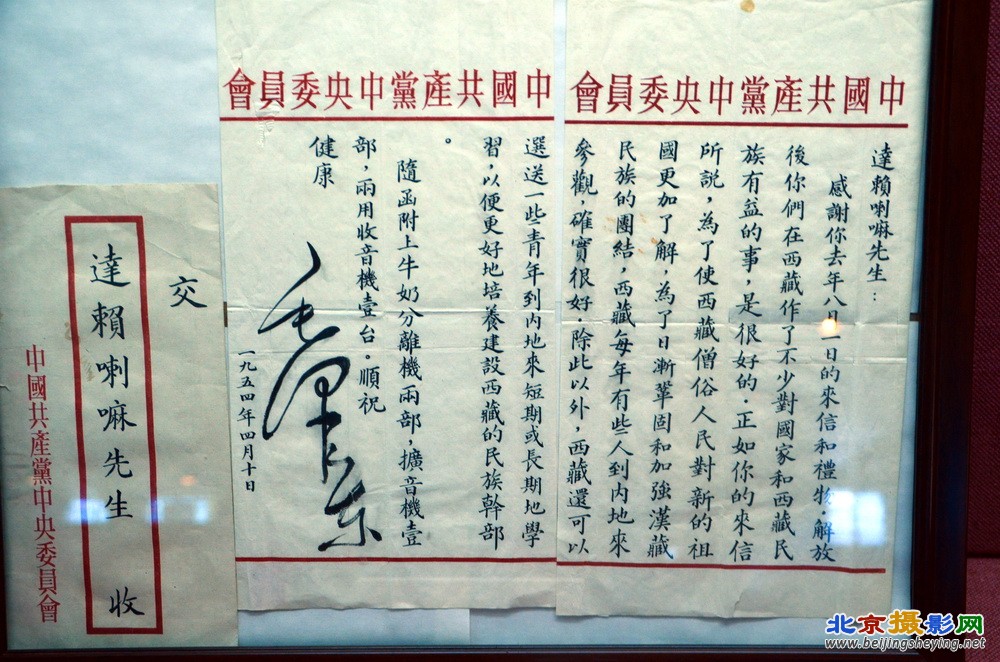 中國共產黨中央委員會
達賴喇嘛先生：
感謝你去年八月一日的來信和禮物。解放
後你們在西藏作了不少對國家和西藏民
族有益的事，是很好的。正如你的來信
所説，為了使西藏僧俗人民對新的祖
國更加了解，為了日漸鞏固和加強漢藏
民族的團結，西藏每年有些人到内地來
參觀，確實很好。除此以外，西藏還可以
中國共產黨中央委員會
選送一些青年到内地來短期或長期地學
習，以便更好地培養建設西藏的民族幹部
。
隨函附上牛奶分離機兩部，擴音機壹
部，兩用收音機壹台。順祝
健康
毛澤東
一九五四年四月十日
交
達賴喇嘛先生 收
中國共產黨中央委員會
北京摄影网
www.beijingsheying.net